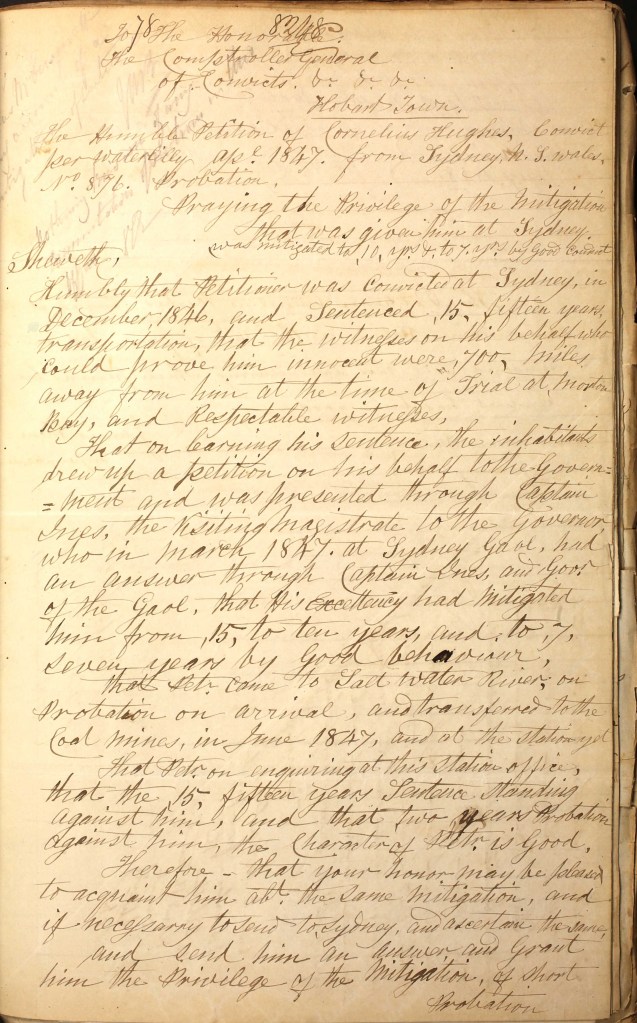 To/78 The Honorable 8348
The Comptroller General
of Convicts. &c. &c. &c.
Hobart Town.
The Humble Petition of Cornelius Hughes, Convict
per Waterlilly apl. 1847. from Sydney, N. S. wales.
No. 876. Probation.
Praying the Privilege of the Mitigation
that was given him at Sydney.
was mitigated to, 10, yrs & to 7. yrs by Good Conduct
Sheweth,
Humbly that Petitioner was Convicted at Sydney, in
December, 1846, and Sentenced, 15, fifteen years,
transportation, that the witnesses on his behalf who
could prove him innocent were, 700, miles
away from him at the time of Trial at, Morton
Bay, and Respectable witnesses,
That on learning his sentence, the inhabitants
drew up a petition on his behalf to the Govern=
=ment and was presented through Captain
Ines, the Visiting Magistrate to the Governor
who in March 1847. at Sydney Gaol, had
an answer through Captain Ines, and Govr.
of the Gaol, that His Excellency had Mitigated
him from, 15, to ten years, and, to, 7,
seven years by Good behaviour,
that Petr. Came to Salt water River, on
Probation on arrival, and transferred to the
Coal Mines, in June 1847, and at the station yet
That Petr. on enquiring at this station office,
that the 15, fifteen years Sentence Standing
against him, and that two years Probation
against him, the Character of Petr. is Good,
Therefore - that your honor may be pleased
to acquaint him abt. the same Mitigation, and
if necessarry to send to Sydney, and ascertain the same,
and send him an answer and Grant
him the Privilege of the Mitigation, of short
Probation